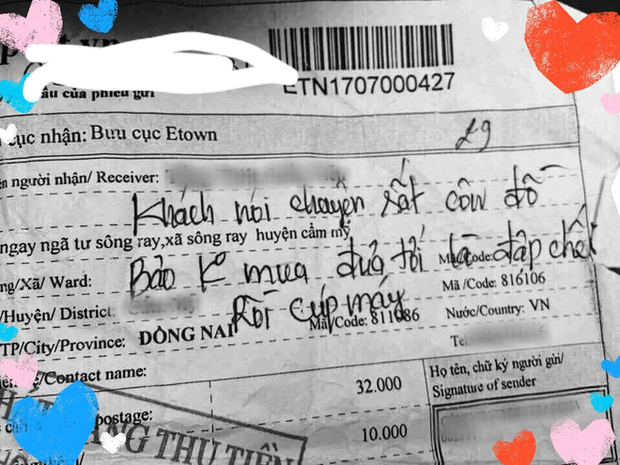 ETN1707000427
ẩu của phiếu gửi
cục nhận: Bưu cục Etown
29
ên người nhận/ Receiver:
Khách nói chuyện rất côn đồ
ngay ngã tư sông ray,xã sông ray huyện cẩm mỹ
Bảo k mua đưa tới là đập chết
ng/Xã/ Ward:
Mã/Code: 816106
Rồi cúp máy
/Huyện/ District:
Mã/Code: 811086
Mã /Code:
TP/City/Province: ĐỒNG NAI
Nước/Country: VN
Tel
/Contact name:
32.000
Họ tên, chữ ký người gửi/
Signature of sender
postage:
10.000
NG THU TIỀN